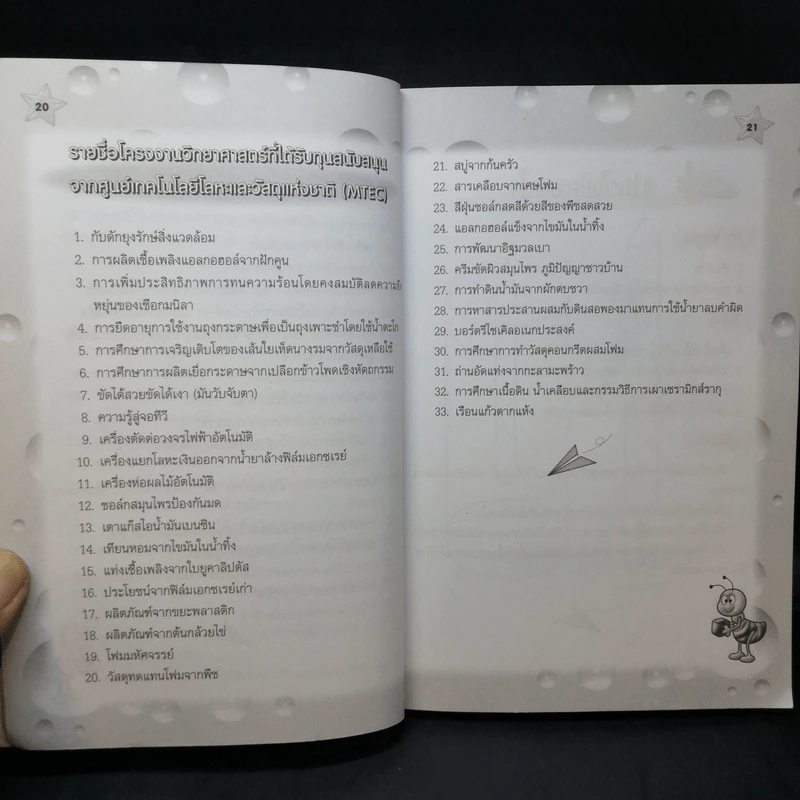 20
รายชื่อโครงงานวิทยาศาสตร์ที่ได้รับทุนสนับสนุน
จากศูนย์เทคโนโลยีโลหะและวัสดุแห่งชาติ (MTEC)
1. กับดักยุงรักษ์สิ่งแวดล้อม
2. การผลิตเชื้อเพลิงแอลกอฮอล์จากฝักคูน
3. การเพิ่มประสิทธิภาพการทนความร้อนโดยคงสมบัติลดความยืด
หยุ่นของเชือกมนิลา
4. การยืดอายุการใช้งานถุงกระดาษเพื่อเป็นถุงเพาะชำโดยใช้น้ำตะโก
5. การศึกษาการเจริญเติบโตของเส้นใยเห็ดนางรมจากวัสดุเหลือใช้
6. การศึกษาการผลิตเยื่อกระดาษจากเปลือกข้าวโพดเชิงหัตถกรรม
7. ขัดได้สวยขัดได้เงา (มันวับจับตา)
8. ความรู้สู่จอทีวี
9. เครื่องตัดต่อวงจรไฟฟ้าอัตโนมัติ
10. เครื่องแยกโลหะเงินออกจากน้ำยาล้างฟิล์มเอกซเรย์
11. เครื่องห่อผลไม้อัตโนมัติ
12. ชอล์กสมุนไพรป้องกันมด
13. เตาแก๊สไอน้ำมันเบนซิน
14. เทียนหอมจากไขมันในน้ำทิ้ง
15. แท่งเชื้อเพลิงจากใบยูคาลิปตัส
16. ประโยชน์จากฟิล์มเอกซเรย์เก่า
17. ผลิตภัณฑ์จากขยะพลาสติก
18. ผลิตภัณฑ์จากต้นกล้วยไข่
19. โฟมมหัศจรรย์
20. วัสดุทดแทนโฟมจากพืช
21
21. สบู่จากก้นครัว
22. สารเคลือบจากเศษโฟม
23. สีฝุ่นชอล์กสดสีด้วยสีของพืชสดสวย
24. แอลกอฮอล์แข็งจากไขมันในน้ำทิ้ง
25. การพัฒนาอิฐมวลเบา
26. ครีมขัดผิวสมุนไพร ภูมิปัญญาชาวบ้าน
27. การทำดินน้ำมันจากผักตบชวา
28. การหาสารประสานผสมกับดินสอพองมาแทนการใช้น้ำยาลบคำผิด
29. บอร์ดรีไซเคิลอเนกประสงค์
30. การศึกษาการทำวัสดุคอนกรีตผสมโฟม
31. ถ่านอัดแท่งจากกะลามะพร้าว
32. การศึกษาเนื้อดิน น้ำเคลือบและกรรมวิธีการเผาเซรามิกส์รากุ
33. เรือนแก้วตากแห้ง